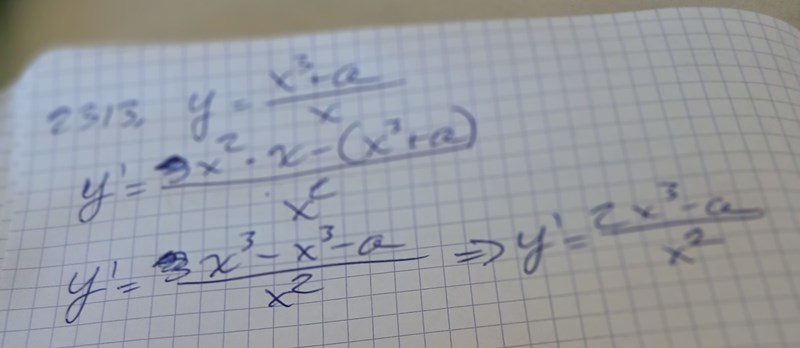 2313. y = (x³+a)/x
y' = (3x² · x - (x³+a))/x²
y' = (3x³ - x³ - a)/x² => y' = (2x³ - a)/x²